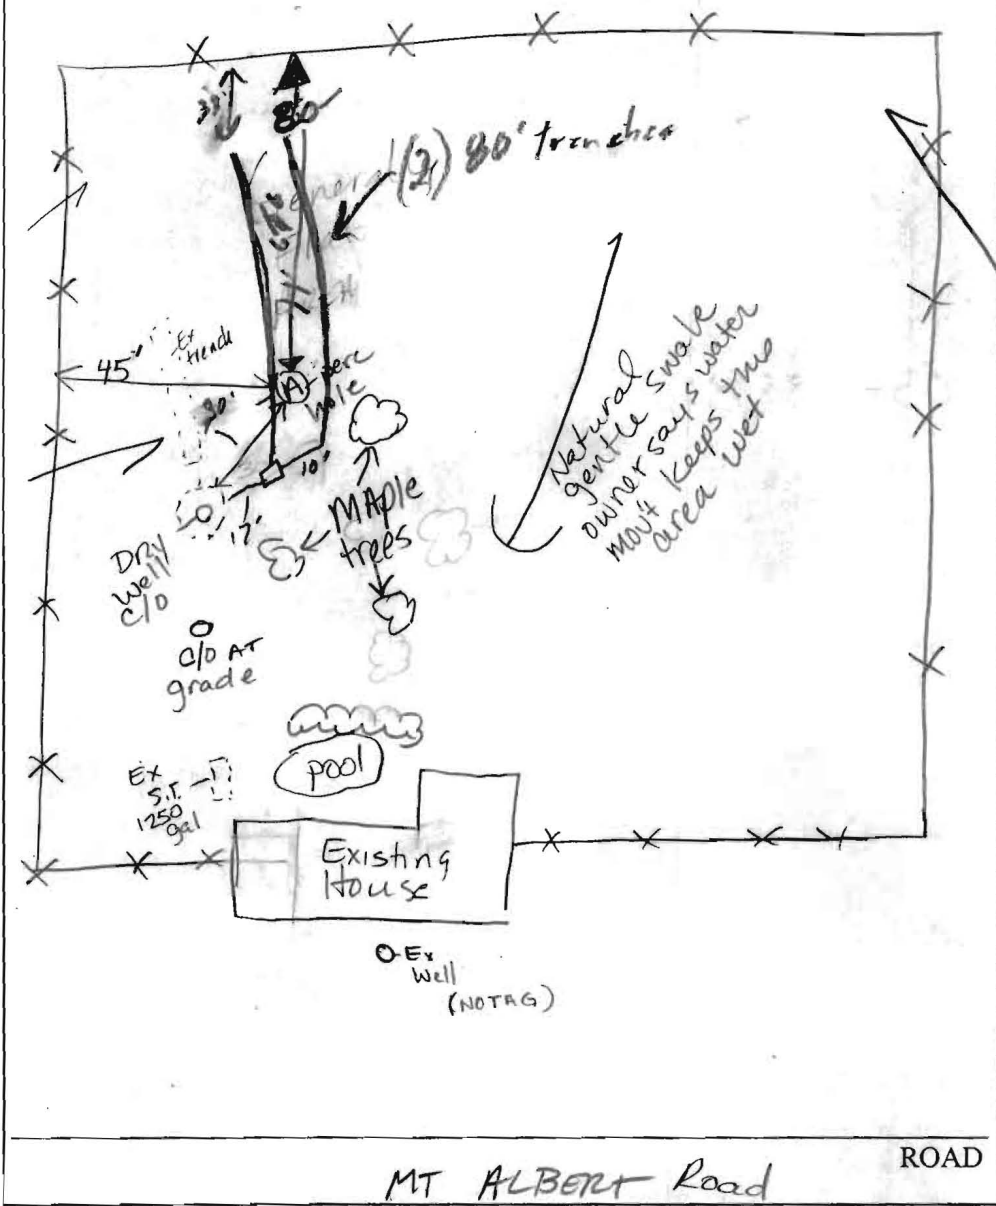 80'
(2) 80' trenches
71'
45'
Ex
trench
A
perc
hole
30'
10'
17'
MAple
trees
Natural
gentle swale
owner says water
mov't keeps this
area wet
DRy
Well
C/O
C/O AT
grade
pool
Ex
S.T.
1250
gal
Existing
House
Ex
Well
(NOTAG)
ROAD
MT ALBERT Road